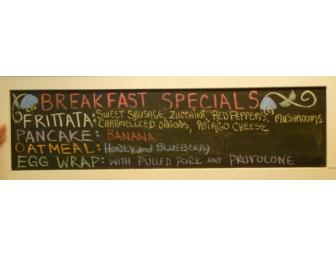 BREAKFAST SPECIALS
FRITTATA: SWEET SAUSAGE, ZUCCHINI, RED PEPPERS, MUSHROOMS
CARAMELIZED ONIONS, ASIAGO CHEESE
PANCAKE: BANANA
OATMEAL: HONEY and BLUEBERRY
EGG WRAP: WITH PULLED PORK and PROVOLONE